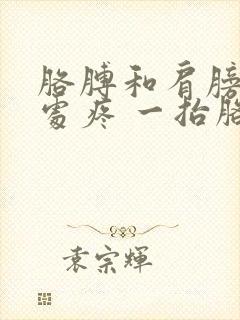 胳膊和肩膀
处疼 一抬胳
袁宗輝